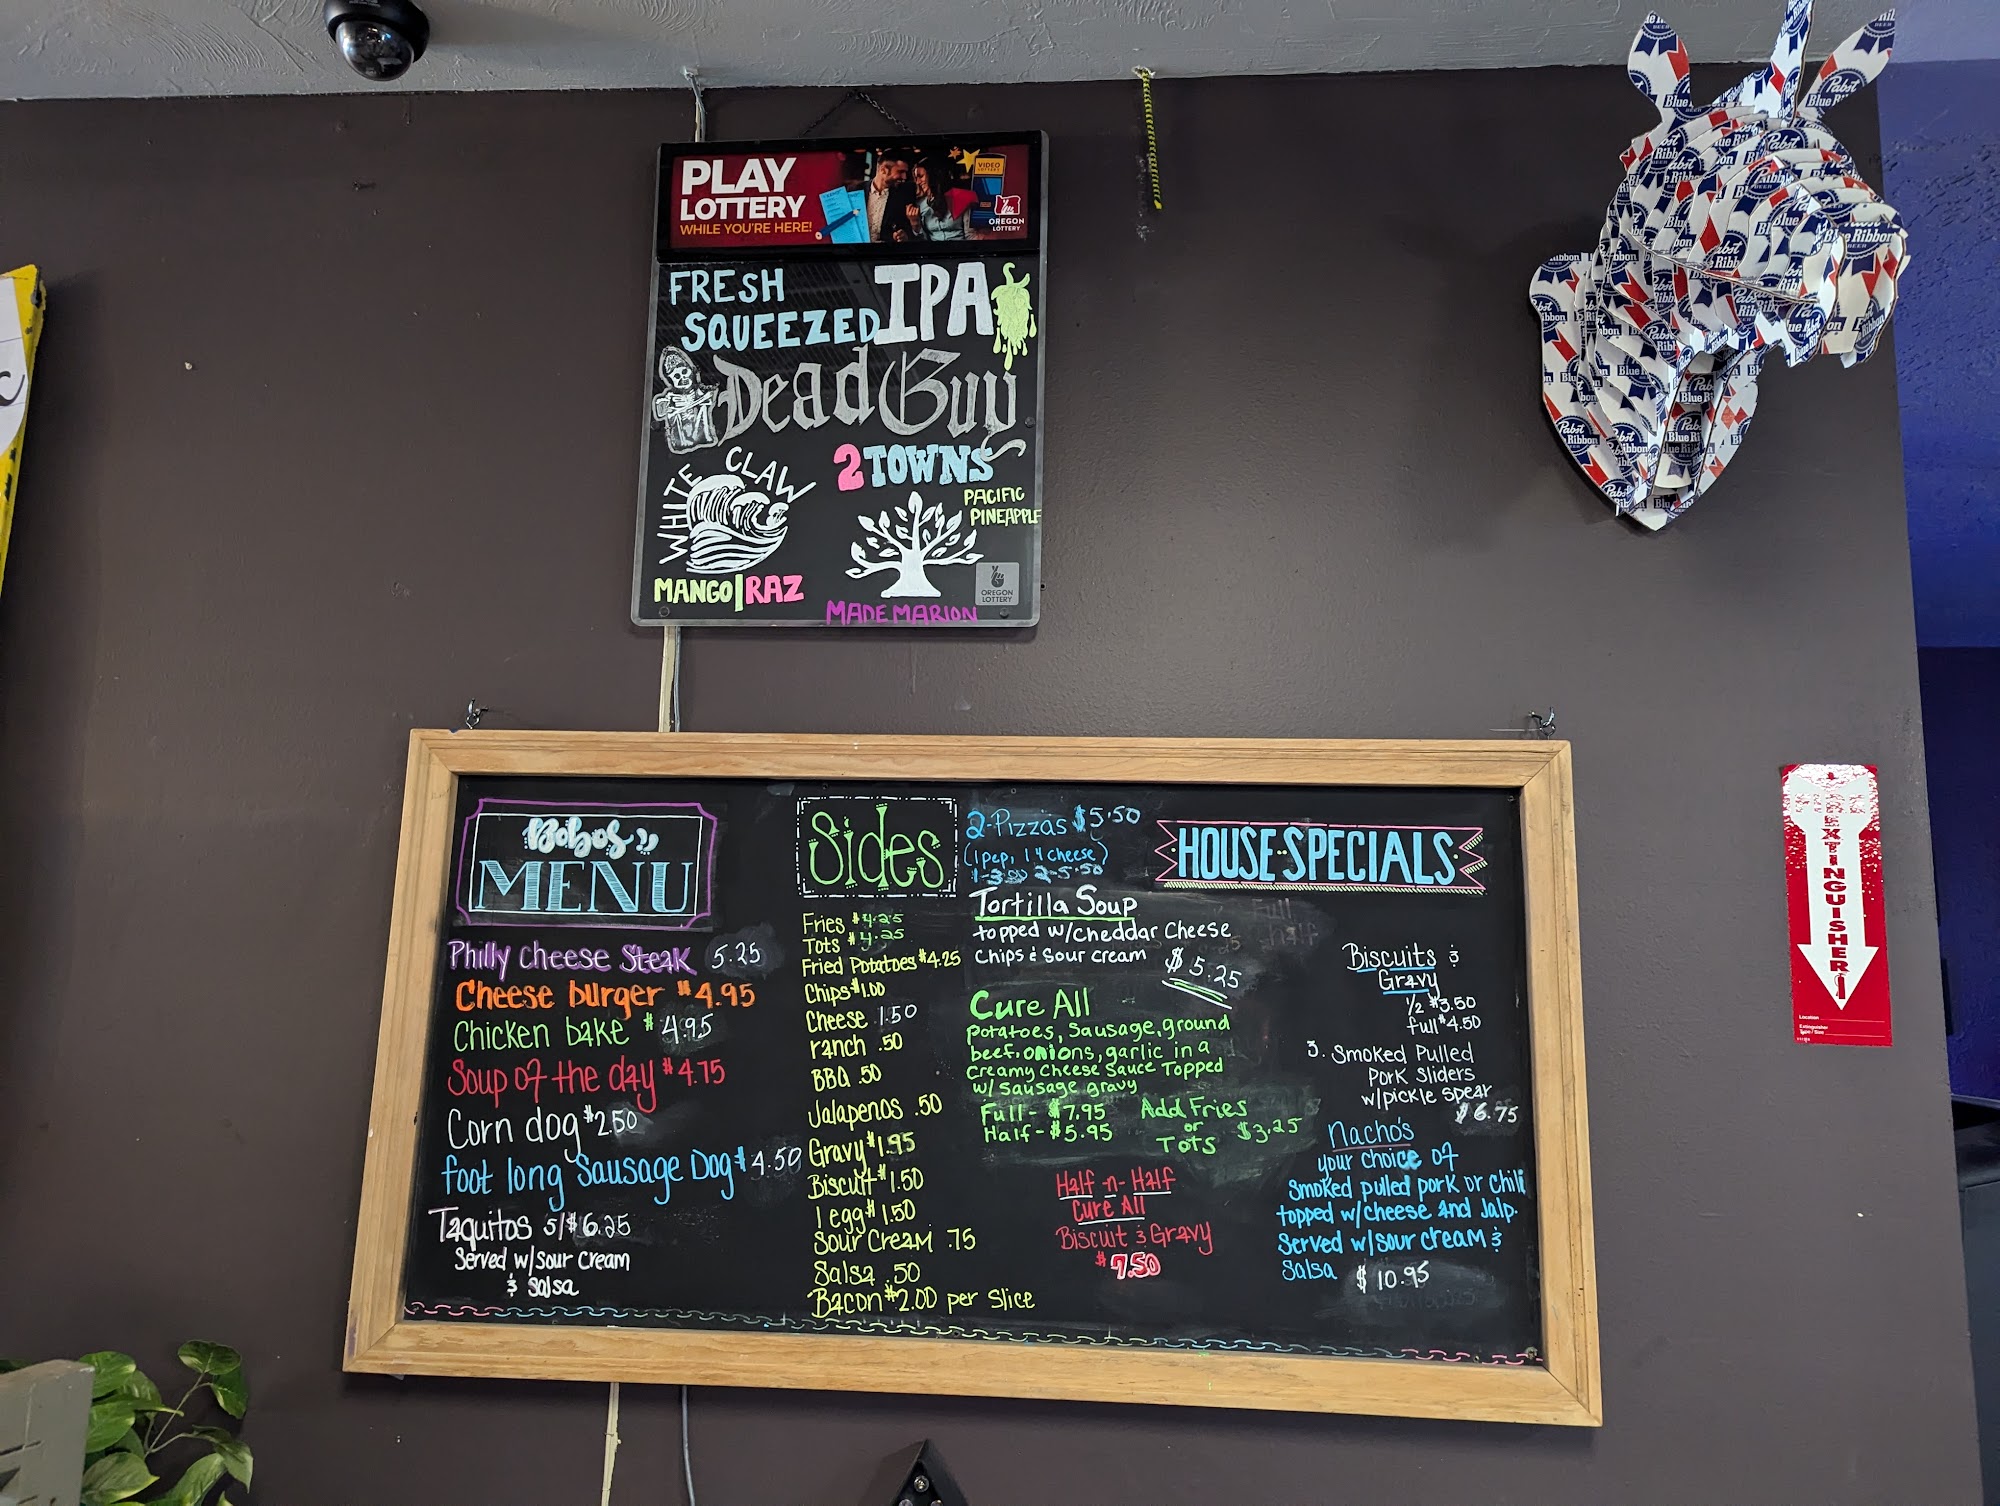 PLAY
LOTTERY
WHILE YOU'RE HERE!
VIDEO
LOTTERY
OREGON
LOTTERY
FRESH
SQUEEZED IPA
Dead Guy
WHITE CLAW
MANGO|RAZ
2 TOWNS
PACIFIC
PINEAPPLE
MADE MARION
OREGON
LOTTERY
Pabst
Blue Ribbon
BEER
Bobos
MENU
Philly cheese Steak 5.25
Cheese burger $4.95
Chicken bake $4.95
Soup of the day $4.75
Corn dog $2.50
foot long Sausage Dog $4.50
Taquitos 5/$6.25
Served w/sour cream
& Salsa
Sides
Fries $4.25
Tots $4.25
Fried Potatoes $4.25
Chips $1.00
Cheese 1.50
ranch .50
BBQ .50
Jalapenos .50
Gravy $1.95
Biscuit $1.50
1 egg $1.50
Sour Cream .75
Salsa .50
Bacon $2.00 per slice
2-Pizzas $5.50
(1 pep, 1 4 cheese)
1-3.50 2-5.50
Tortilla Soup
topped w/cheddar cheese
Chips & sour cream $5.25
Cure All
Potatoes, Sausage, ground
beef, onions, garlic in a
creamy cheese Sauce Topped
w/ sausage gravy
Full- $7.95
Half- $5.95
Add Fries
or
Tots $3.25
Half -n- Half
Cure All
Biscuit & Gravy
$7.50
HOUSE SPECIALS
Biscuits &
Gravy
1/2 $3.50
full $4.50
3. Smoked Pulled
Pork Sliders
w/pickle spear
$6.75
Nacho's
your choice of
Smoked pulled pork or chili
topped w/cheese and Jalp.
Served w/sour cream &
Salsa $10.95
FIRE
EXTINGUISHER
Location
Extinguisher
Type / Size